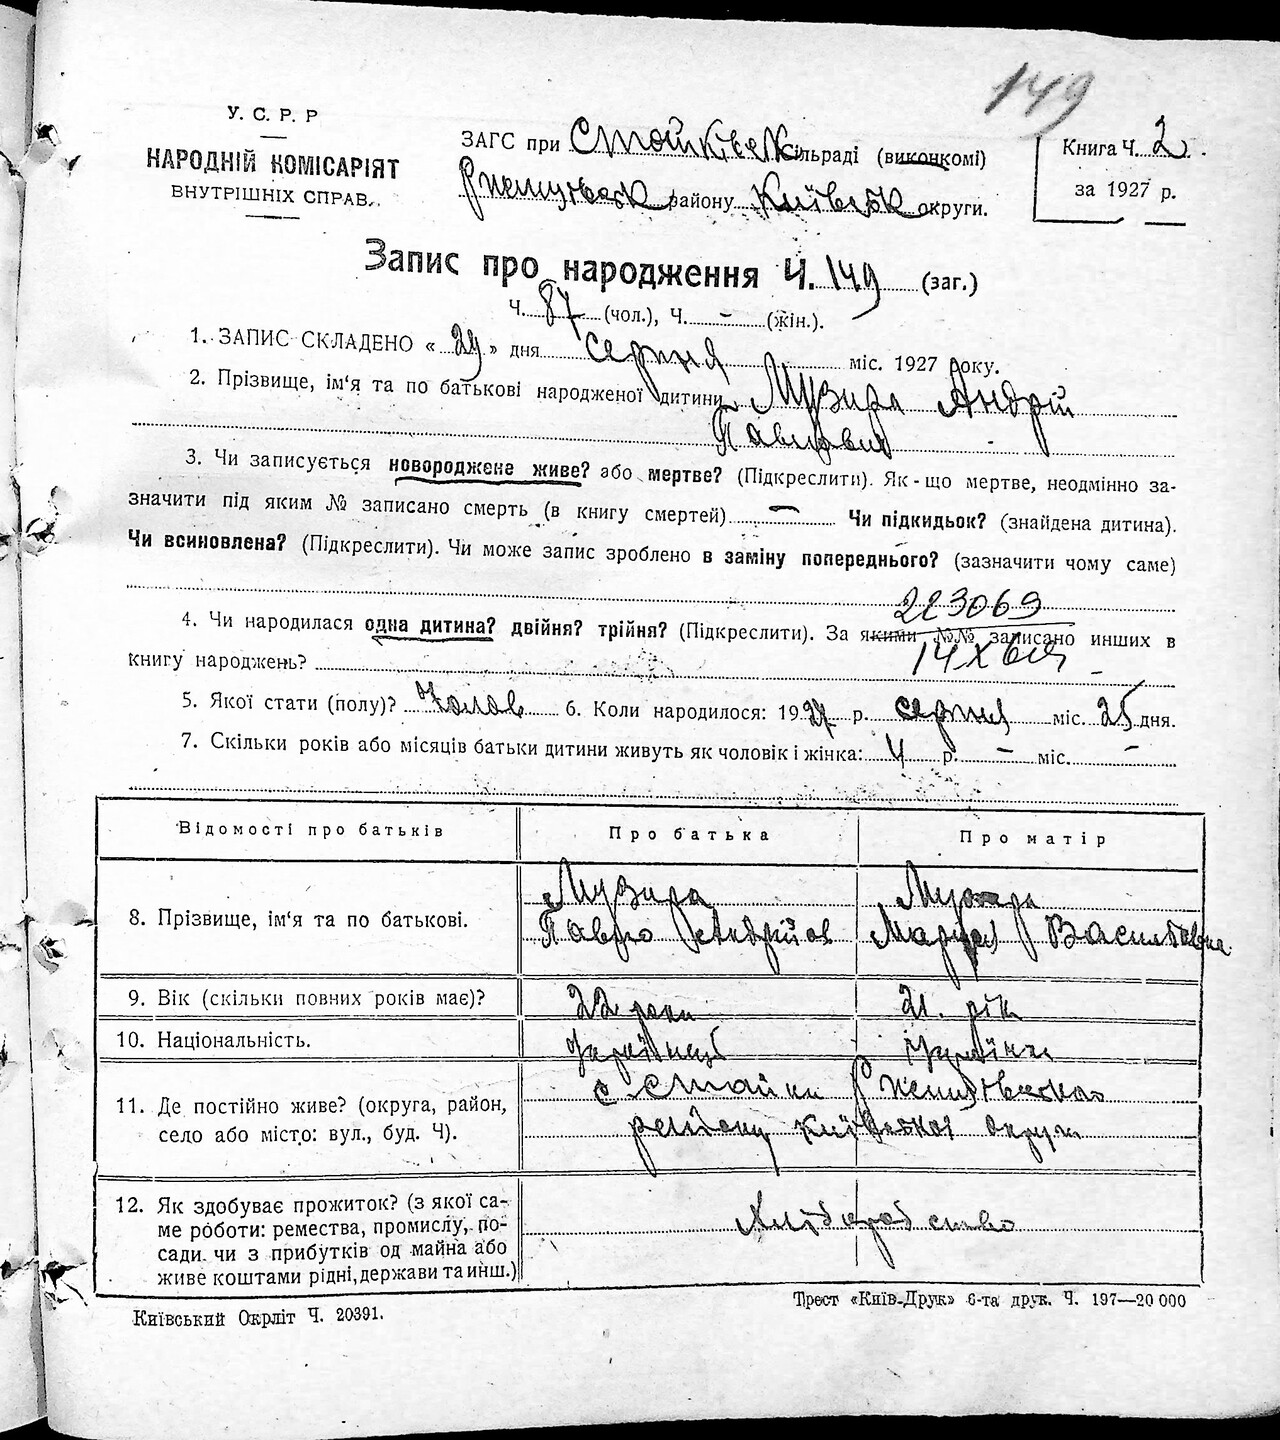 149
У. С. Р. Р
НАРОДНІЙ КОМІСАРІЯТ
ВНУТРІШНІХ СПРАВ.
ЗАГС при Стайківськ сільраді (виконкомі)
Ржищівськ району Київськ округи.
Книга Ч. 2.
за 1927 р.
Запис про народження Ч. 149 (заг.)
Ч. 87 (чол.), Ч. - (жін.).
1. ЗАПИС СКЛАДЕНО « 29 » дня серпня міс. 1927 року.
2. Прізвище, ім‘я та по батькові народженої дитини Музира Андрій
Павлович
3. Чи записується новороджене живе? або мертве? (Підкреслити). Як-що мертве, неодмінно за-
значити під яким № записано смерть (в книгу смертей) — Чи підкидьок? (знайдена дитина).
Чи всиновлена? (Підкреслити). Чи може запис зроблено в заміну попереднього? (зазначити чому саме)
223069
4. Чи народилася одна дитина? двійня? трійня? (Підкреслити). За якими №№ записано инших в
книгу народжень?
14 X
5. Якої стати (полу)? Чолов 6. Коли народилося: 1927 р. серпня міс. 25 дня.
7. Скільки років або місяців батьки дитини живуть як чоловік і жінка: 4 р. – міс. –
Відомості про батьків Про батька Про матір
8. Прізвище, ім‘я та по батькові.
Музира
Павло Андрійов
Музира
Мария Василівна
9. Вік (скільки повних років має)? 22 роки 21 рік
10. Національність. Українець Українка
11. Де постійно живе? (округа, район,
село або місто: вул., буд. Ч).
с Стайки Ржищівського
району Київської округи
12. Як здобуває прожиток? (з якої са-
ме роботи: ремества, промислу, по-
сади чи з прибутків од майна або
живе коштами рідні, держави та инш.)
Хліборобство
Київський Окрліт Ч. 20391.
Трест «Київ-Друк» 6-та друк. Ч. 197—20 000